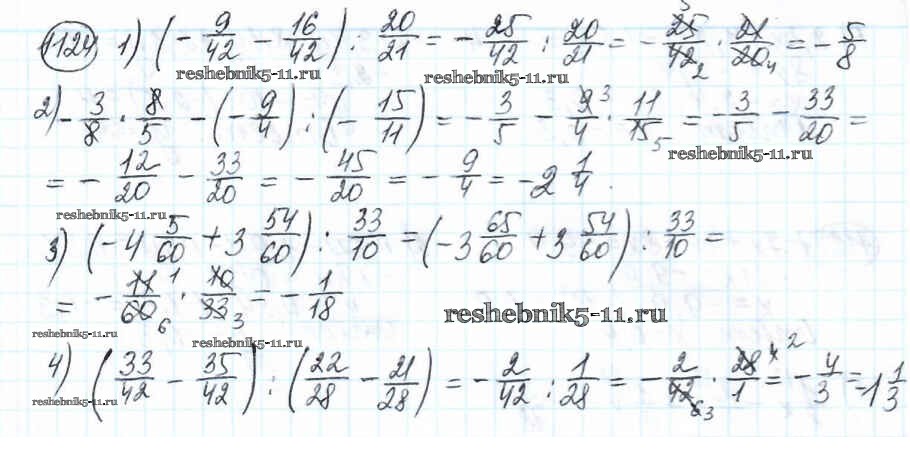 1124 1) (- 9/42 - 16/42) : 20/21 = - 25/42 : 20/21 = - 25/42 · 21/20 = - 5/8
reshebnik5-11.ru reshebnik5-11.ru
2) - 3/8 · 8/5 - (- 9/4) : (- 15/11) = - 3/5 - 9/4 · 11/15 = - 3/5 - 33/20 =
reshebnik5-11.ru
= - 12/20 - 33/20 = - 45/20 = - 9/4 = -2 1/4.
reshebnik5-11.ru
3) (-4 5/60 + 3 54/60) : 33/10 = (-3 65/60 + 3 54/60) : 33/10 =
= - 11/60 · 10/33 = - 1/18
reshebnik5-11.ru
reshebnik5-11.ru
4) (33/42 - 35/42) : (22/28 - 21/28) = - 2/42 : 1/28 = - 2/42 · 28/1 = - 4/3 = -1 1/3
reshebnik5-11.ru